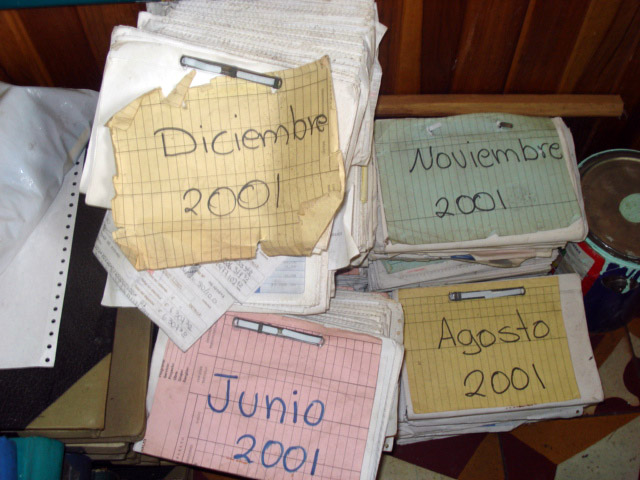 Diciembre
2001
Noviembre
2001
Agosto
2001
Junio
2001